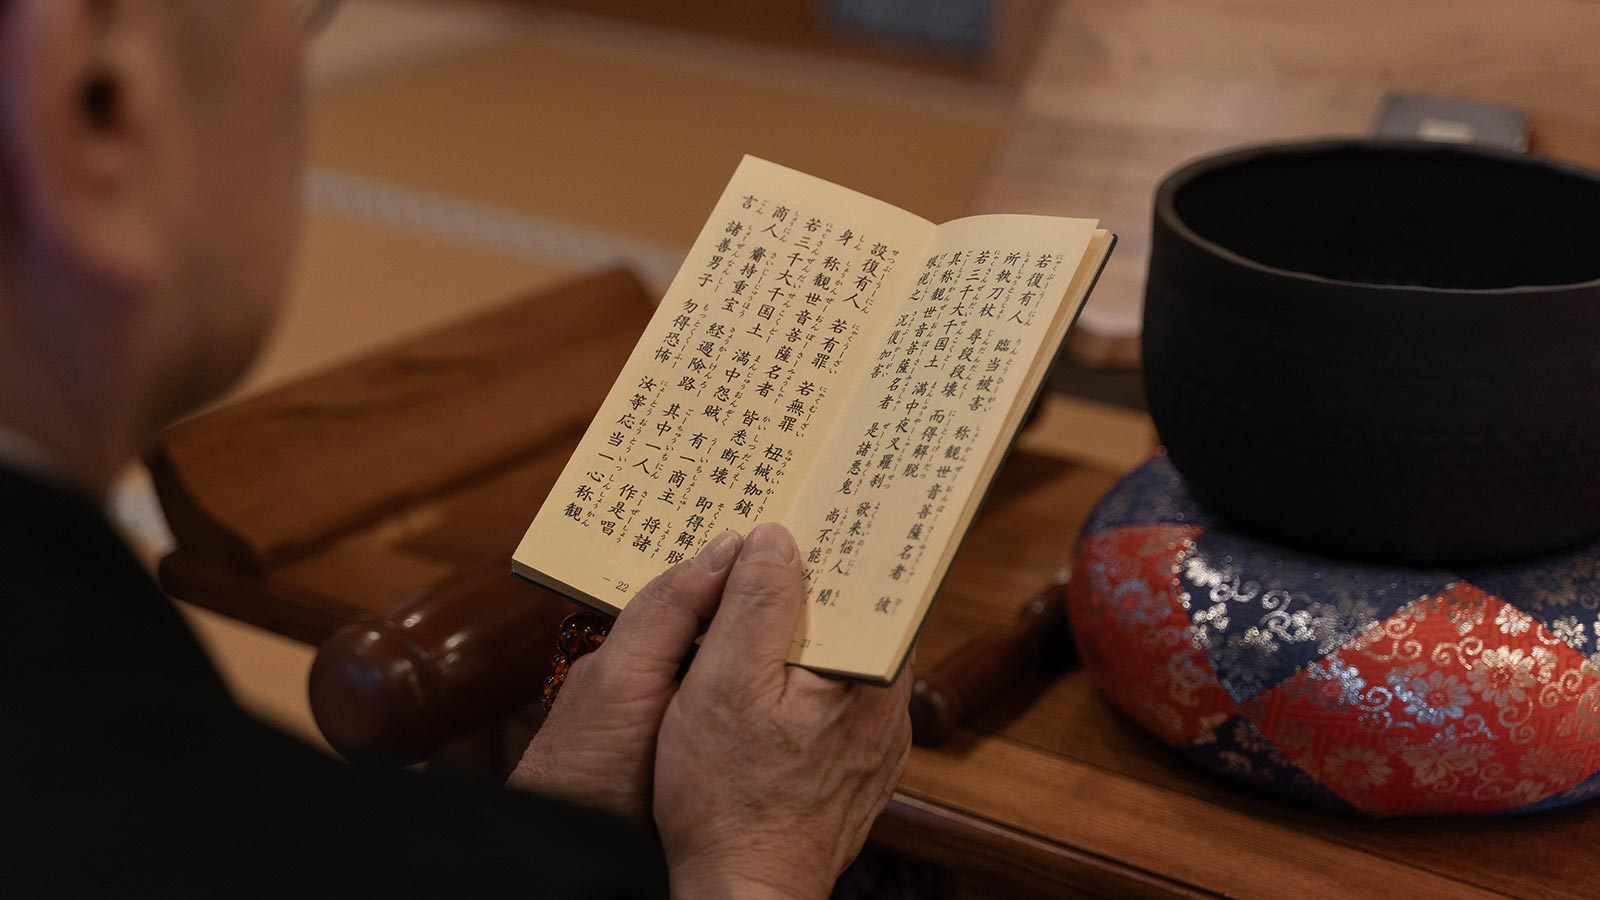 若復有人 臨当被害 称観世音菩薩名者 彼
所執刀杖 尋段段壊 而得解脱
若三千大千国土 満中夜叉羅刹 欲来悩人 聞
其称観世音菩薩名者 是諸悪鬼 尚不能以
眼視之 況復加害
－21－
設復有人 若有罪 若無罪 杻械枷鎖
身 称観世音菩薩名者 皆悉断壊 即得解脱
若三千大千国土 満中怨賊 有一商主 将諸
商人 齎持重宝 経過険路 其中一人 作是唱
言 諸善男子 勿得恐怖 汝等応当一心称観
－22－